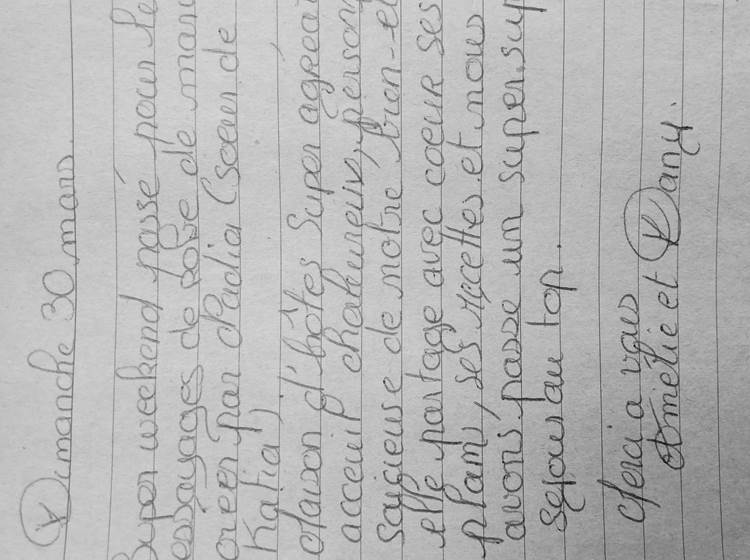 Dimanche 30 mars.
Super weekend passé pour le
essayages de robe de mari
créer par Nadia (soeur de
Katia)
Maison d'hôtes super agréa
acceuil chaleureux, person
soucieuse de notre bien-ê
elle partage avec coeur ses
plams, ses recettes et nous
avons passe un super, sup
sejour au top.
Merci a vous
Amélie et Dany.